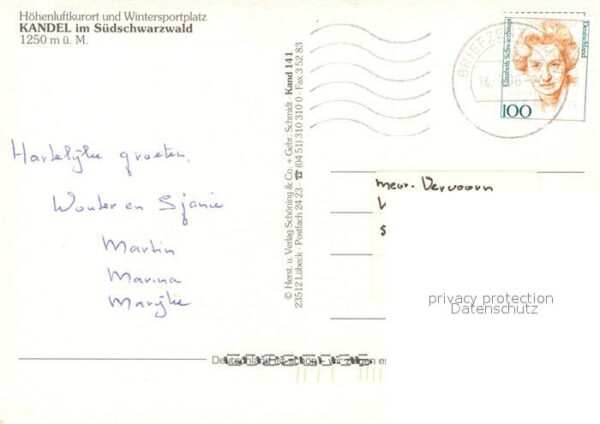 Höhenluftkurort und Wintersportplatz
KANDEL im Südschwarzwald
1250 m ü. M.
Hartelijke groeten,
Wouter en Sjanie
Martin
Marina
Marijke
© Herst. u. Verlag Schöning & Co. + Gebr. Schmidt · Kand 141
23512 Lübeck · Postfach 24 23 · ☎ (04 51) 310 310 0 · Fax 3 52 83
BRIEFZ
Elisabeth Schwarzhaupt
Deutschland
100
mevr. Vervoorn
privacy protection
Datenschutz
Deutschland ist schön - wir zeigen es